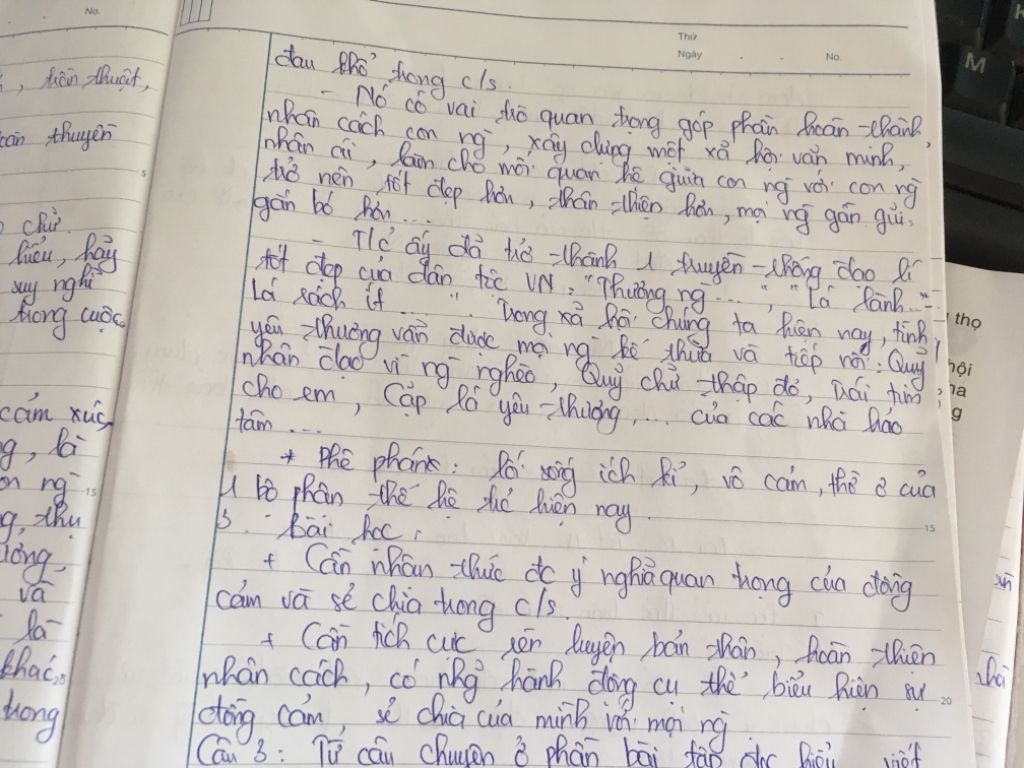 No.
, trần thuật,
thuyền
chữ.
hiểu, hãy
suy nghĩ
trong cuộc
cảm xúc
g, là
on ng
15
g, thụ
lòng,
và
là
khác,
20
trong
5
Thứ
Ngày
No.
đau khổ trong c/s.
- Nó có vai trò quan trọng góp phần hoàn thành,
nhân cách con ng, xây dựng một xã hội văn minh,
nhân ái, làm cho mối quan hệ giữa con ng với con ng
trở nên tốt đẹp hơn, thân thiện hơn, mọi ng gần gũi,
gắn bó hơn...
- T/c ấy đã trở thành 1 truyền thống đạo lí
tốt đẹp của dân tộc VN: "Thương ng...", "Lá lành..."
Lá rách ít ....". Trong xã hội chúng ta hiện nay, tình
yêu thương vẫn được mọi ng kế thừa và tiếp nối: Quỹ
nhân đạo vì ng nghèo, Quỹ chữ thập đỏ, Trái tim
cho em, Cặp lá yêu thương,... của các nhà hảo
tâm...
* Phê phán: lối sống ích kỉ, vô cảm, thờ ơ của
1 bộ phận thế hệ trẻ hiện nay.
15
3. Bài học:
+ Cần nhận thức đc ý nghĩa quan trọng của đồng
cảm và sẻ chia trong c/s.
+ Cần tích cực rèn luyện bản thân, hoàn thiện
nhân cách, có nhg hành động cụ thể biểu hiện sự
20
đồng cảm, sẻ chia của mình với mọi ng
Câu 3: Từ câu chuyện ở phần bài tập đọc hiểu, viết
M
thọ
hội
g